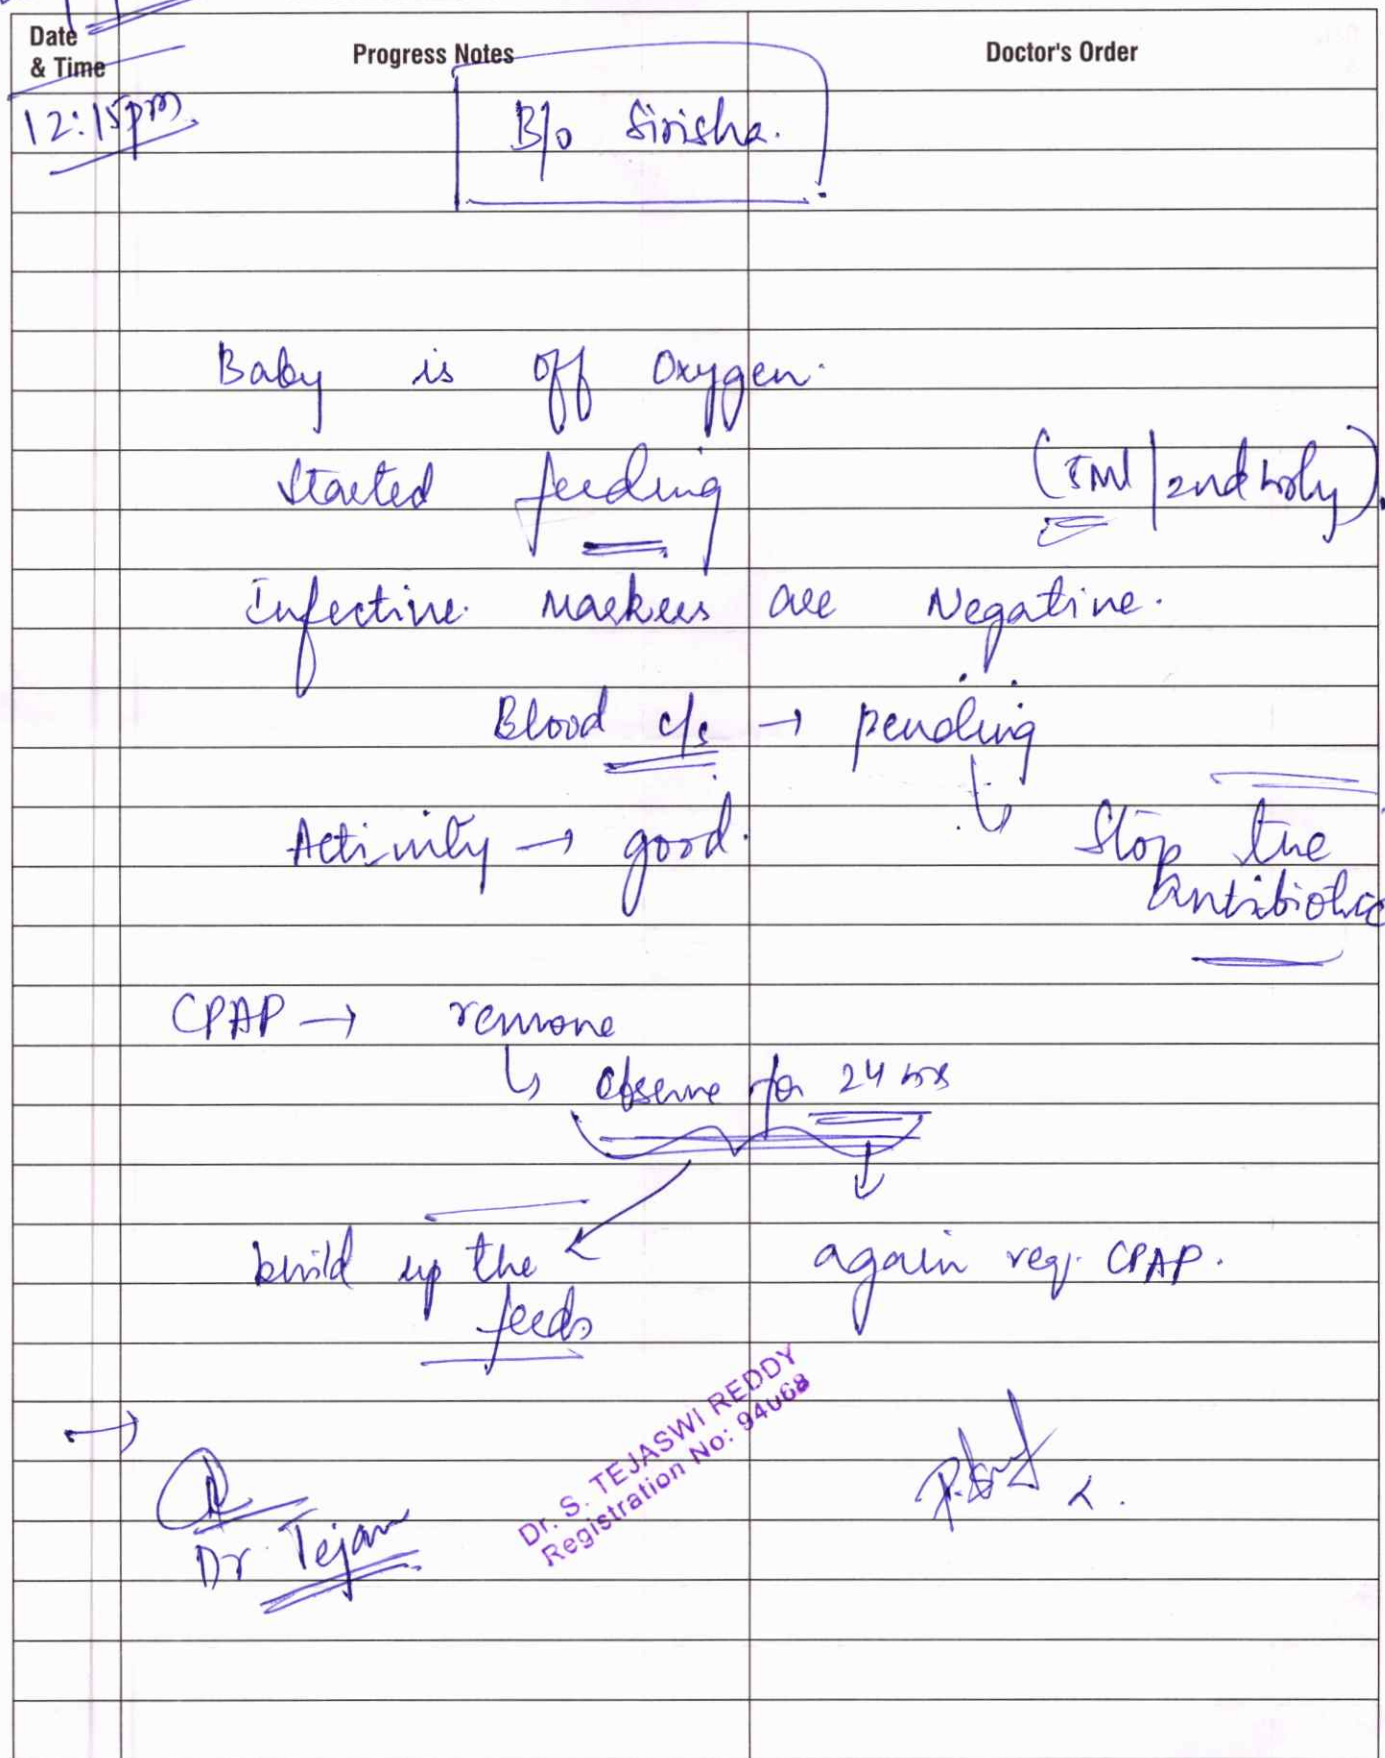 Date & Time Progress Notes Doctor's Order
12:15pm
B/o Sirisha.
Baby is off Oxygen.
Started feeding (5ml/2nd hrly).
Infective markers are Negative.
Blood c/s → pending
↳ Stop the antibiotic
Activity → good.
CPAP → remove
↳ observe for 24 hrs
build up the feeds
again req. CPAP.
Dr. S. TEJASWI REDDY
Registration No: 94068
Dr